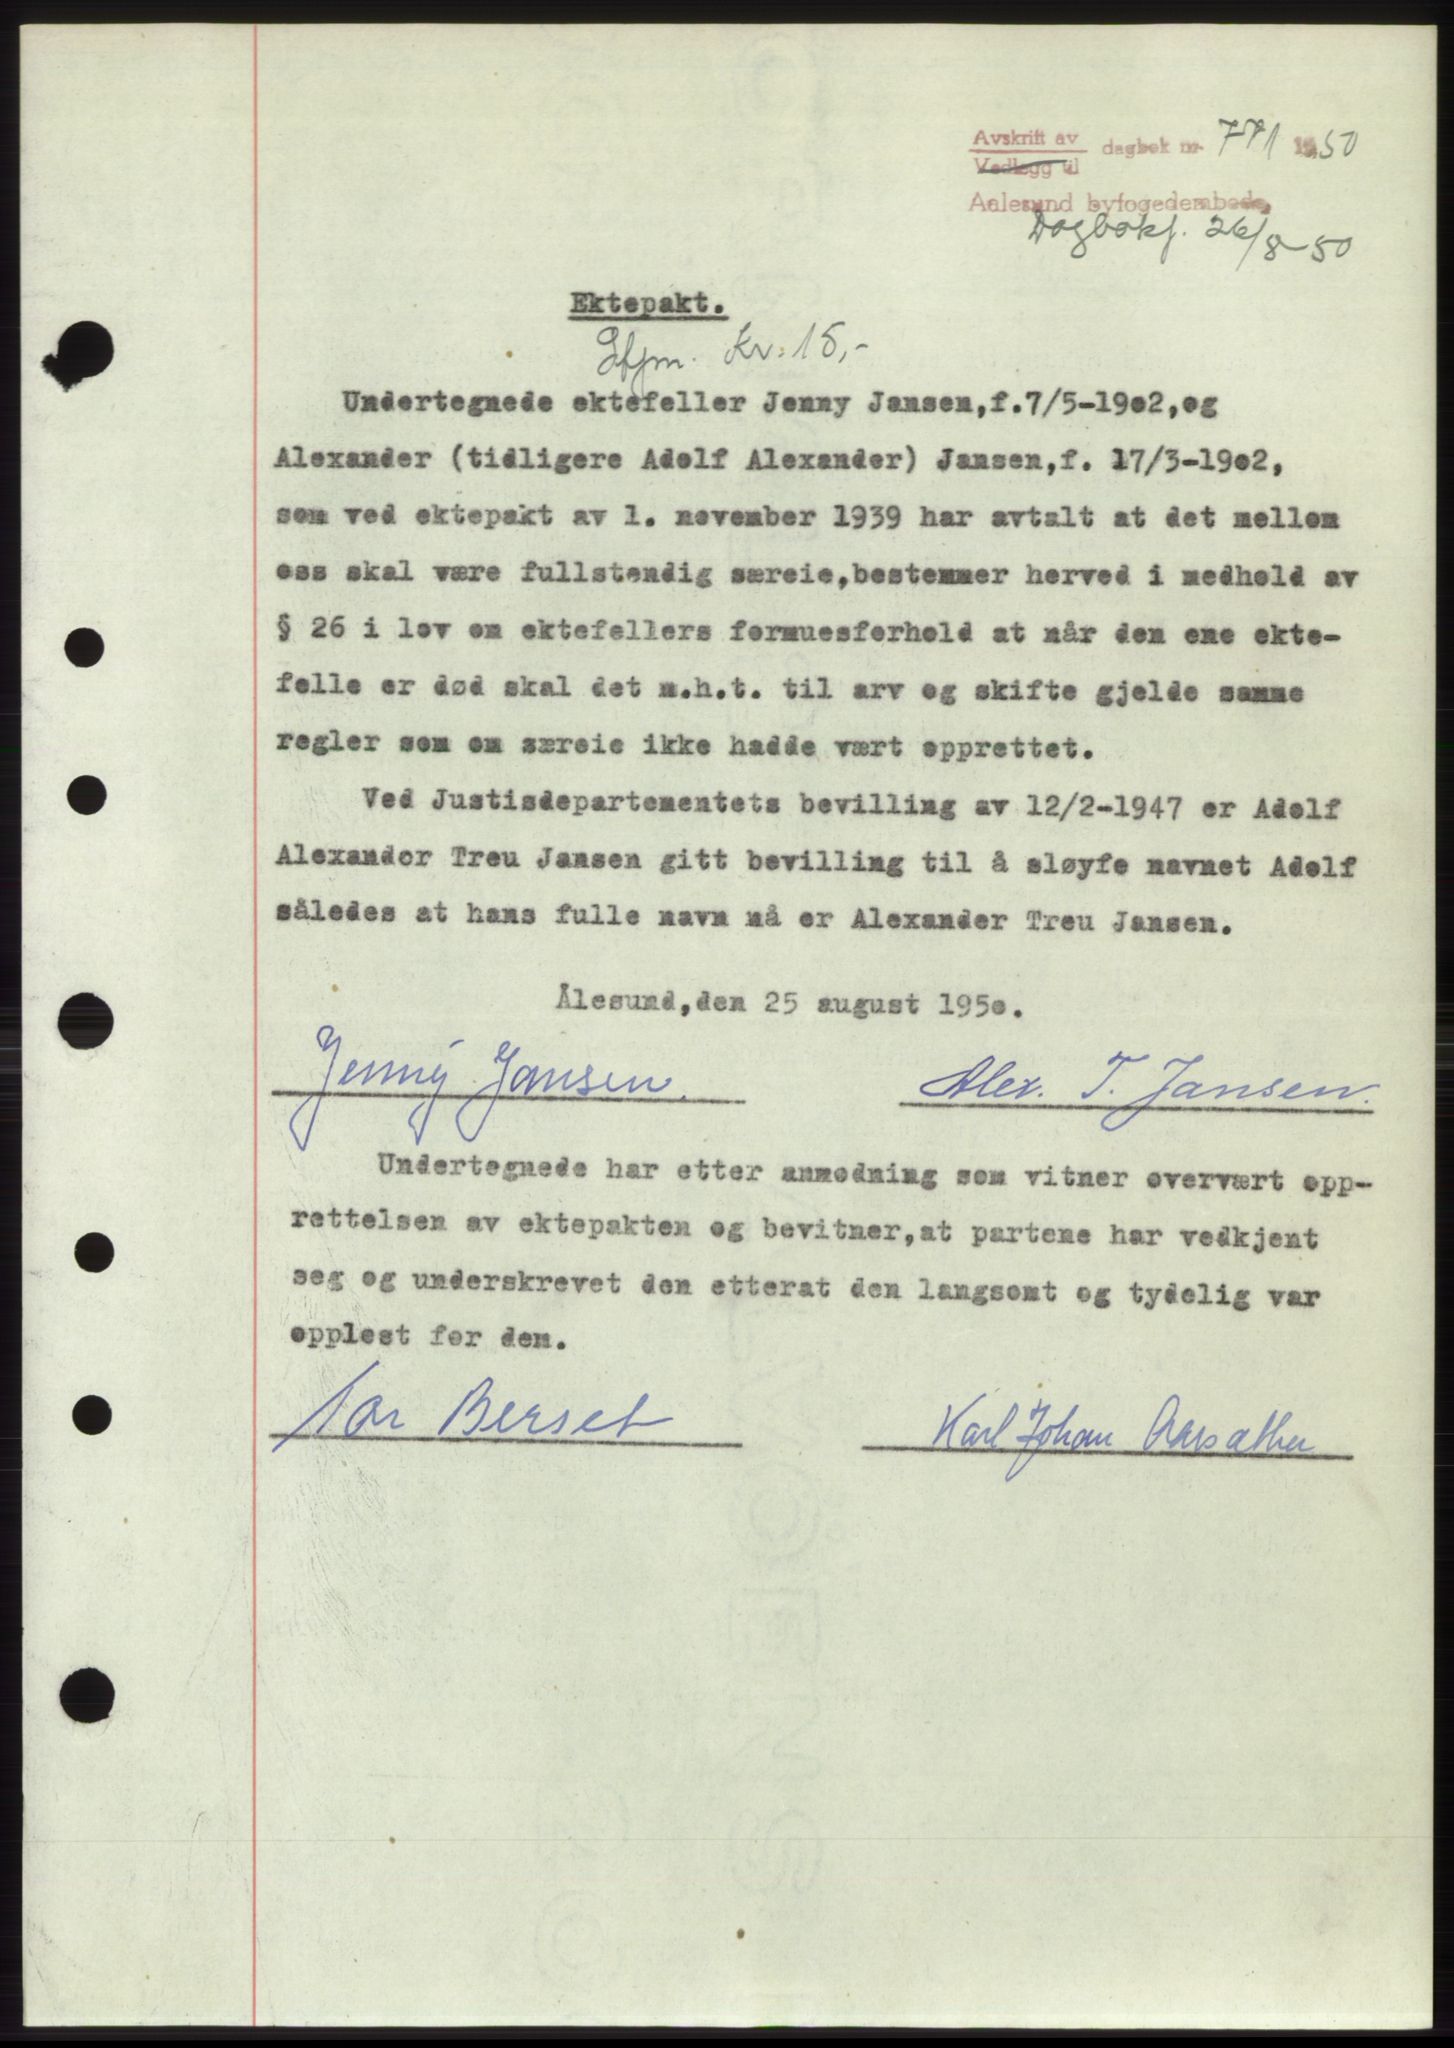 Avskrift av
Vedlegg til
dagbek nr. 771 1950
Aalesund byfogedembede,
Dagbokf. 26/8-50
Ektepakt.
Kr. 15,-
Undertegnede ektefeller Jenny Jansen,f.7/5-19o2,og
Alexander (tidligere Adolf Alexander) Jansen,f. 17/3-19o2,
som ved ektepakt av 1. november 1939 har avtalt at det mellom
oss skal være fullstendig særeie,bestemmer herved i medhold av
§ 26 i lov om ektefellers formuesforhold at når den ene ekte-
felle er død skal det m.h.t. til arv og skifte gjelde samme
regler som om særeie ikke hadde vært opprettet.
Ved Justisdepartementets bevilling av 12/2-1947 er Adolf
Alexander Treu Jansen gitt bevilling til å sløyfe navnet Adolf
således at hans fulle navn nå er Alexander Treu Jansen.
Ålesund,den 25 august 195o.
Jenny Jansen. Alex. T. Jansen.
Undertegnede har etter anmodning som vitner overvært opp-
rettelsen av ektepakten og bevitner,at partene har vedkjent
seg og underskrevet den etterat den langsomt og tydelig var
opplest for dem.
Tor Berset Karl Johan Aarsæther